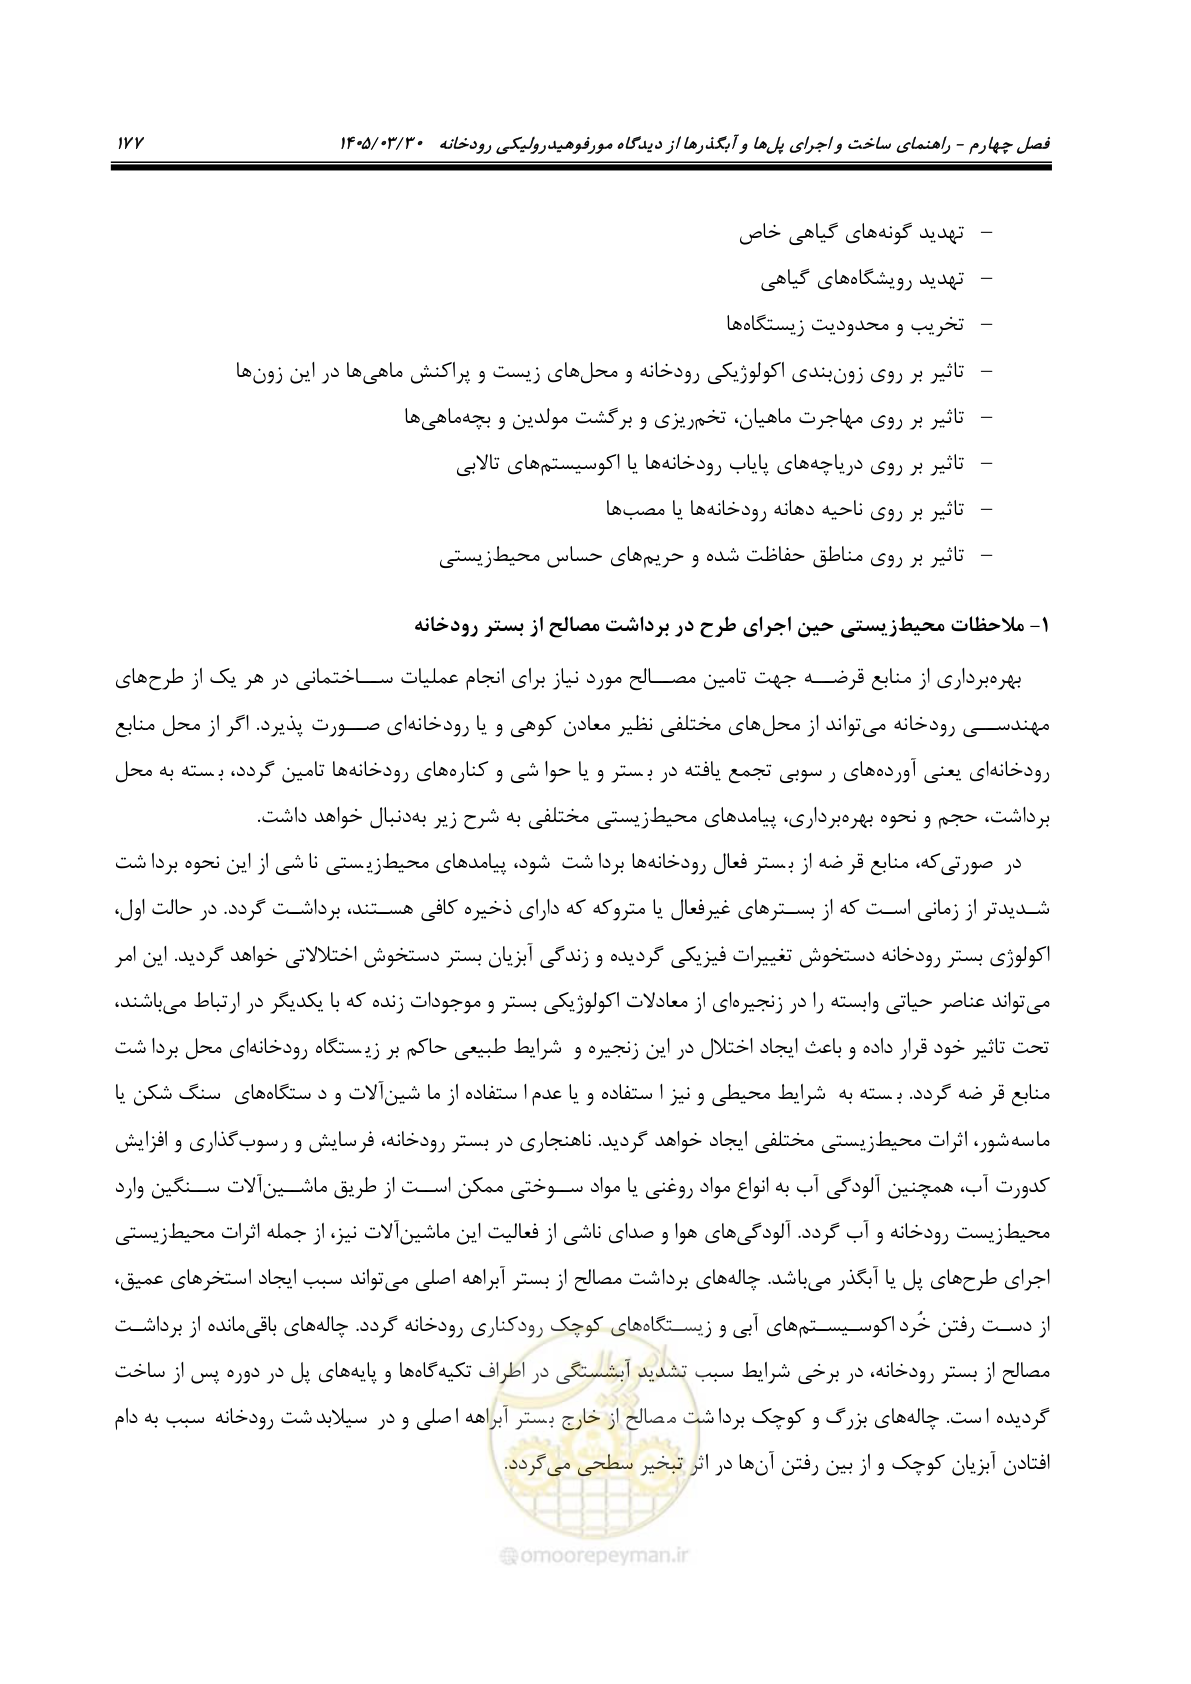 فصل چهارم - راهنمای ساخت و اجرای پل‌ها و آبگذرها از دیدگاه مورفوهیدرولیکی رودخانه ۱۴۰۵/۰۳/۳۰ ۱۷۷
– تهدید گونه‌های گیاهی خاص
– تهدید رویشگاه‌های گیاهی
– تخریب و محدودیت زیستگاه‌ها
– تاثیر بر روی زون‌بندی اکولوژیکی رودخانه و محل‌های زیست و پراکنش ماهی‌ها در این زون‌ها
– تاثیر بر روی مهاجرت ماهیان، تخم‌ریزی و برگشت مولدین و بچه‌ماهی‌ها
– تاثیر بر روی دریاچه‌های پایاب رودخانه‌ها یا اکوسیستم‌های تالابی
– تاثیر بر روی ناحیه دهانه رودخانه‌ها یا مصب‌ها
– تاثیر بر روی مناطق حفاظت شده و حریم‌های حساس محیط‌زیستی
۱- ملاحظات محیط‌زیستی حین اجرای طرح در برداشت مصالح از بستر رودخانه
بهره‌برداری از منابع قرضه جهت تامین مصالح مورد نیاز برای انجام عملیات ساختمانی در هر یک از طرح‌های
مهندسی رودخانه می‌تواند از محل‌های مختلفی نظیر معادن کوهی و یا رودخانه‌ای صورت پذیرد. اگر از محل منابع
رودخانه‌ای یعنی آورده‌های رسوبی تجمع یافته در بستر و یا حواشی و کناره‌های رودخانه‌ها تامین گردد، بسته به محل
برداشت، حجم و نحوه بهره‌برداری، پیامدهای محیط‌زیستی مختلفی به شرح زیر به‌دنبال خواهد داشت.
در صورتی‌که، منابع قرضه از بستر فعال رودخانه‌ها برداشت شود، پیامدهای محیط‌زیستی ناشی از این نحوه برداشت
شدیدتر از زمانی است که از بسترهای غیرفعال یا متروکه که دارای ذخیره کافی هستند، برداشت گردد. در حالت اول،
اکولوژی بستر رودخانه دستخوش تغییرات فیزیکی گردیده و زندگی آبزیان بستر دستخوش اختلالاتی خواهد گردید. این امر
می‌تواند عناصر حیاتی وابسته را در زنجیره‌ای از معادلات اکولوژیکی بستر و موجودات زنده که با یکدیگر در ارتباط می‌باشند،
تحت تاثیر خود قرار داده و باعث ایجاد اختلال در این زنجیره و شرایط طبیعی حاکم بر زیستگاه رودخانه‌ای محل برداشت
منابع قرضه گردد. بسته به شرایط محیطی و نیز استفاده و یا عدم استفاده از ماشین‌آلات و دستگاه‌های سنگ شکن یا
ماسه‌شور، اثرات محیط‌زیستی مختلفی ایجاد خواهد گردید. ناهنجاری در بستر رودخانه، فرسایش و رسوب‌گذاری و افزایش
کدورت آب، همچنین آلودگی آب به انواع مواد روغنی یا مواد سوختی ممکن است از طریق ماشین‌آلات سنگین وارد
محیط‌زیست رودخانه و آب گردد. آلودگی‌های هوا و صدای ناشی از فعالیت این ماشین‌آلات نیز، از جمله اثرات محیط‌زیستی
اجرای طرح‌های پل یا آبگذر می‌باشد. چاله‌های برداشت مصالح از بستر آبراهه اصلی می‌تواند سبب ایجاد استخرهای عمیق،
از دست رفتن خُرد اکوسیستم‌های آبی و زیستگاه‌های کوچک رودکناری رودخانه گردد. چاله‌های باقی‌مانده از برداشت
مصالح از بستر رودخانه، در برخی شرایط سبب تشدید آبشستگی در اطراف تکیه‌گاه‌ها و پایه‌های پل در دوره پس از ساخت
گردیده است. چاله‌های بزرگ و کوچک برداشت مصالح از خارج بستر آبراهه اصلی و در سیلابدشت رودخانه سبب به دام
افتادن آبزیان کوچک و از بین رفتن آن‌ها در اثر تبخیر سطحی می‌گردد.
امور پیمان
@omoorepeyman.ir